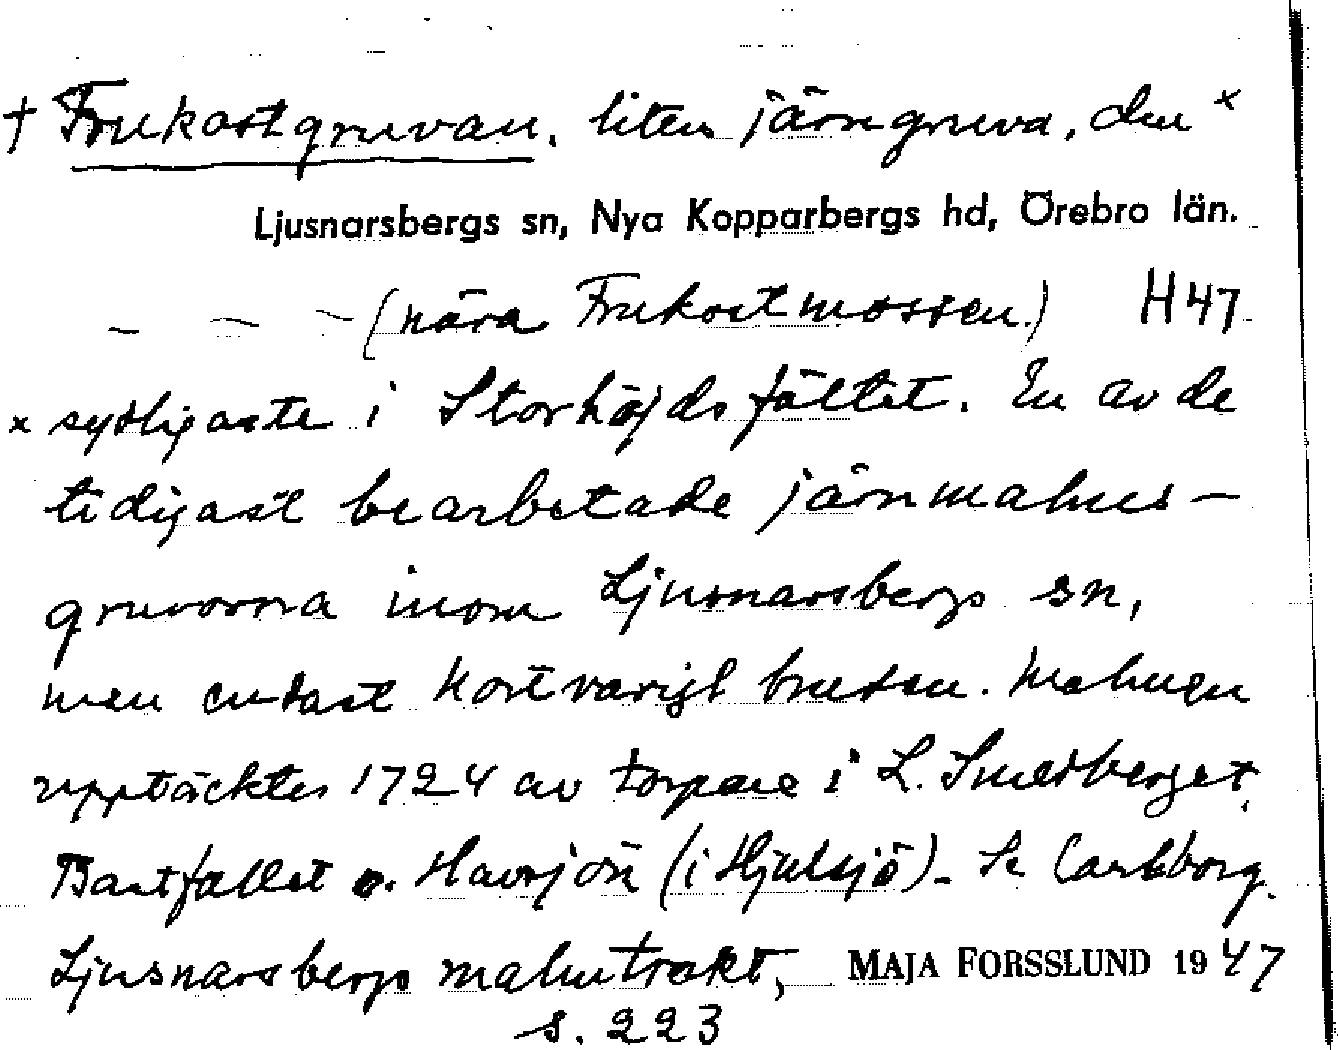 † Frukostgruvan, liten järngruva, den x
Ljusnarsbergs sn, Nya Kopparbergs hd, Örebro län.
– – – (nära Frukostmossen.) H 47
x sydligaste i Storhöjdsfältet. En av de
tidigast bearbetade järnmalms–
gruvorna inom Ljusnarsbergs sn,
men endast kortvarigt bruten. Malmen
upptäcktes 1724 av torpare i L. Smedberget,
Bastfallet o. Havsjön (i Hjulsjö). – Se Carlborg.
Ljusnarsbergs malmtrakt, MAJA FORSSLUND 1947
s. 223